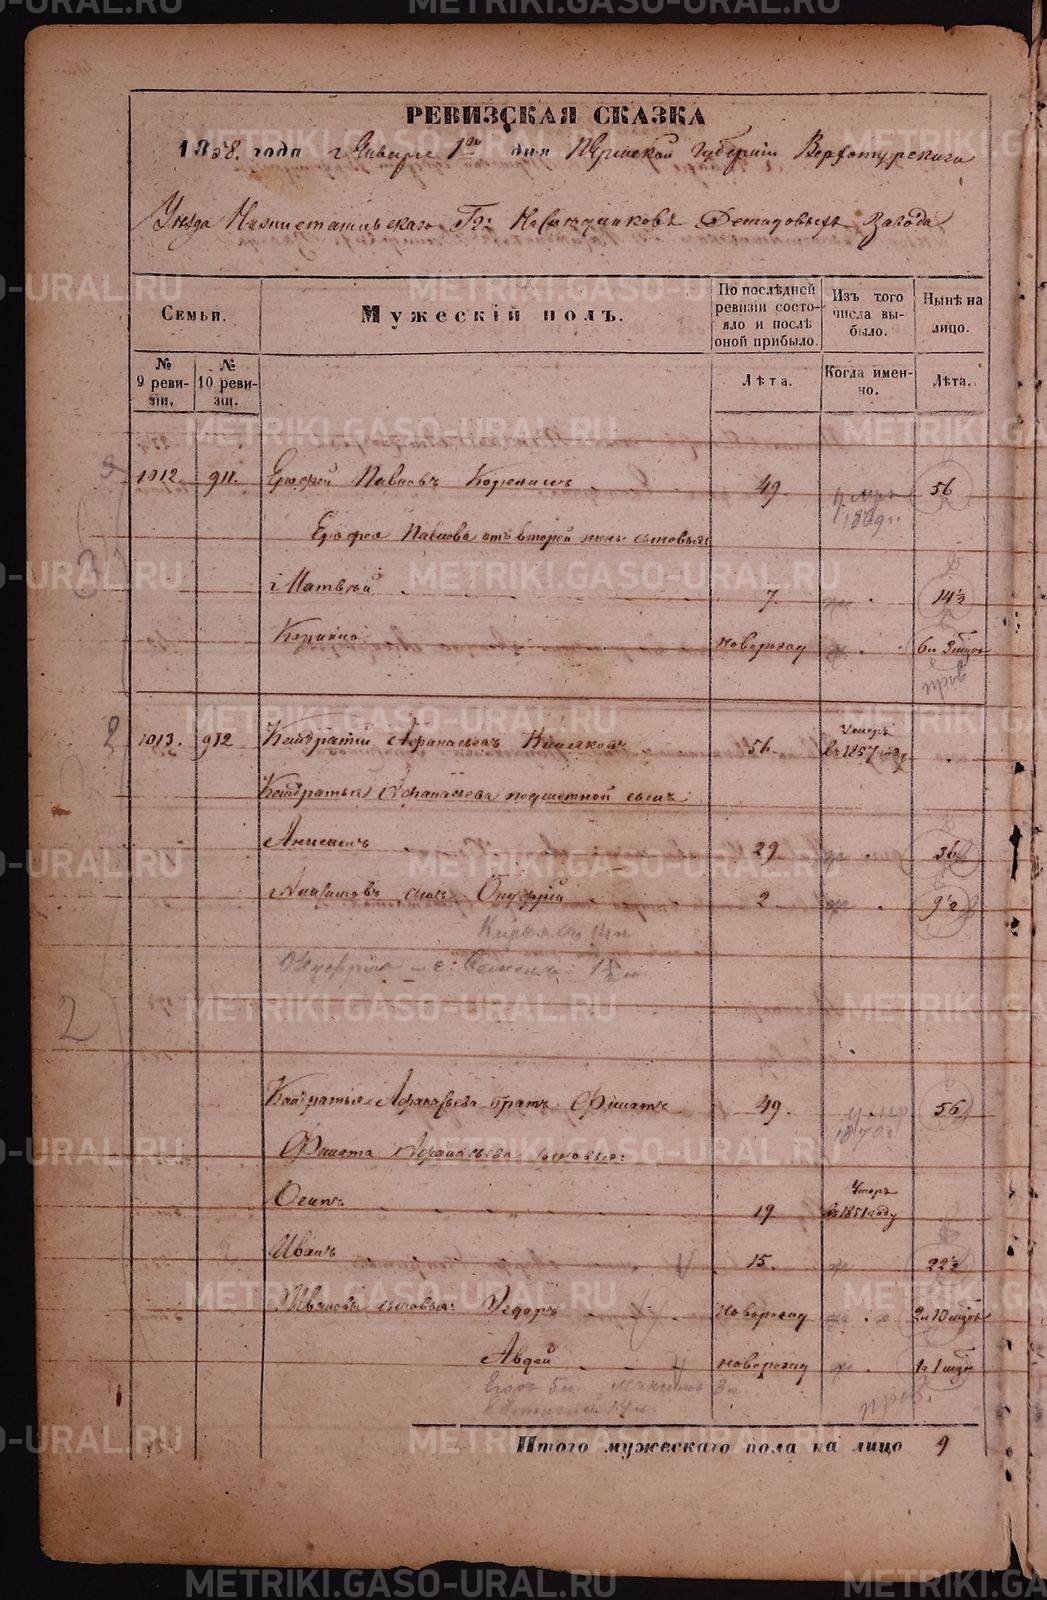 РЕВИЗСКАЯ СКАЗКА
1858. года Января 1го дня Пермской Губернии Верхотурскаго
Уезда Нижнетагильскаго Гг: Наследниковъ Демидовыхъ Завода
Семьи.
Мужескій полъ.
По послѣдней ревизіи состояло и послѣ оной прибыло.
Изъ того числа выбыло.
Нынѣ на лицо.
№ 9 ревизіи.
№ 10 ревизіи.
Лѣта.
Когда именно.
Лѣта.
1012. 911. Ерофей Павловъ 49. 56
умеръ 1869г.
Ерофея Павлова отъ второй жены сыновья
1 Матвѣй 7. 14½
новорожд 6м
1013. 912 Кондратій Афанасьевъ 56. Умеръ въ 1857 году
Кондратья Афанасьева сынъ:
Анисимъ 29 36
Анисимовъ сынъ Онуфрій 2 9½
14л
Онуфрія - с: Семенъ 1½
2
Кондратья Афанасьева братъ Филатъ 49. 56
умер 1870г
Филата Афанасьева сыновья:
Осипъ 19 Умеръ въ 1851 году
Иванъ 15. 22½
Ивановы сыновья: Федоръ Новорожд 2л 10 мцовъ
Авдей новорожд 1л 1 мцъ
Егоръ 5л. 3л
Итого мужескаго пола на лицо 9
METRIKI.GASO-URAL.RU